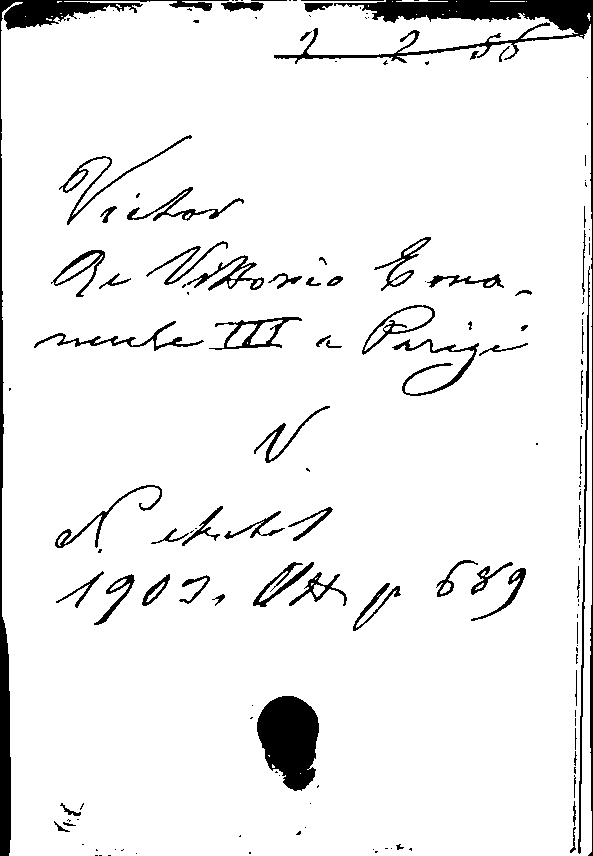 2 2. 56
Victor
Re Vittorio Ema-
nuele III a Parigi
V.
N.
1903. Ott. p 689